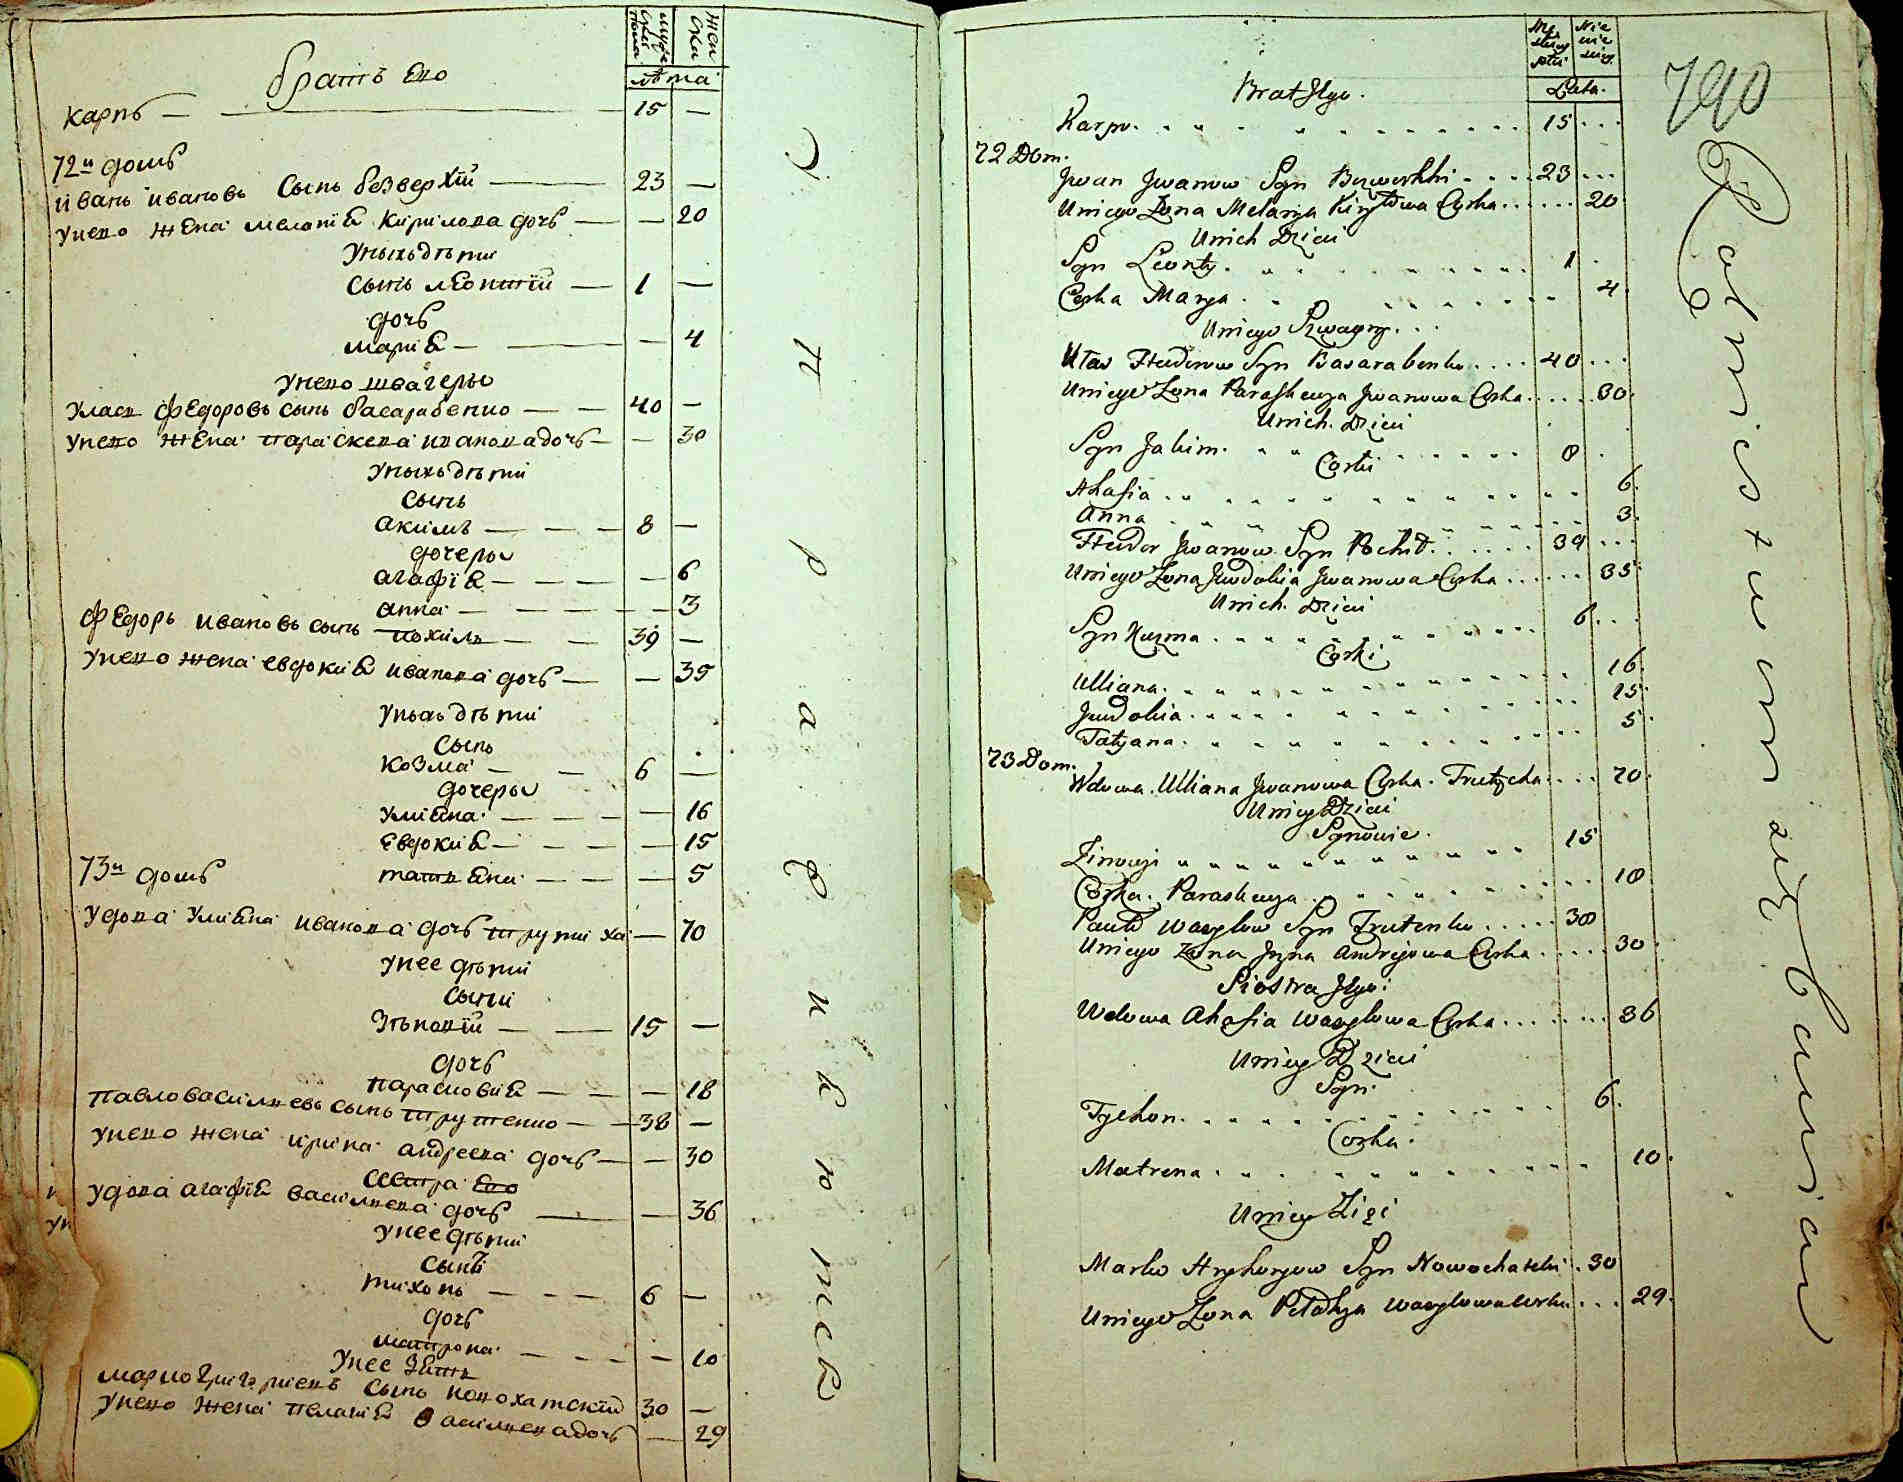 братъ Его
мужеска пола
женска
лѣта
карпъ — 15 —
72й домъ
иванъ ивановъ Сынъ безверхїй — 23 —
унего жЕна мелания Кирилова дочъ — — 20
унихъ дѣти
сынъ лЕонтїй — 1 —
дочъ
мария — — 4
унего швагеры
Уласъ фЕдоровъ сынъ басарабенко — — 40 —
унего жЕна параскева иванова дочъ — — 30
унихъ дѣти
Сынъ
акимъ — — — 8 —
дочеры
агафїя — — — — 6
анна — — — — 3
фЕдоръ ивановъ сынъ похилъ — — 39 —
унего жена евдокия иванова дочъ — — 35
унихъ дѣти
Сынъ
козма — — 6 —
дочеры
улияна — — — 16
Евдокия — — — 15
73й домъ
татияна — — — 5
удова улияна иванова дочъ трутиха — 70
унее дѣти
сыни
Зѣновїй — — 15 —
дочъ
парасковия — — — 18
павло василиевъ сынъ трутенко — — 38 —
унего жена ирина андреева дочъ — — 30
сестра Его
удова агафїя василиева дочъ — — 36
унее дѣти
сынъ
тихонъ — — — 6 —
дочъ
матрона — — — — 10
унее зять
марко григориевъ сынъ новохатский 30 —
унего жена пелагия василиева дочъ — 29
Brat Jego.
Lata.
Karpo. 15 . . .
72 Dom.
Jwan Jwanow Syn Bezwerkhi . . . . 23 . . .
Uniego Zona Melanya Kiryłowa Corka . . . . . . 20
Unich Dzieci
Syn Leonty. 1 .
Corka Marya. 4.
Uniego Szwagry. . .
Ułas Fedorow Syn Basarabenko . . . . 40 . . .
Uniego Zona Paraskewya Jwanowa Corka . . . . . 30.
Unich. Dzieci
Syn Jakim. 8 .
Corki
Ahafia 6.
Anna 3.
Fedor Jwanow Syn Pochił . . . . . . 39 . . .
Uniego Zona Jewdokia Jwanowa Corka . . . . . . 35.
Unich. Dzieci
Syn Kuzma. 6 . . .
Corki
Ulliana. 16.
Jewdokia. 15.
Tatyana. 5.
73 Dom.
Wdowa Ulliana Jwanowa Corka. Trutycha . . . . 70.
Uniey Dzieci
Synowie.
Zinowyi 15
Corka. Paraskewya 18
Pawło Wasylow Syn Trutenko . . . . . 38
Uniego Zona Jryna Andrejowa Corka . . . . . 30.
Siostra Jego:
Wdowa Ahafia Wasylowa Corka . . . . . . . 36
Uniey Dzieci
Syn.
Tychon. 6.
Corka.
Matrena. 10.
Uniey Zięć
Marko Hryhoryow Syn Nowochatski . 30
Uniego Zona Pełahya Wasylowa Corka . . . 29.
790